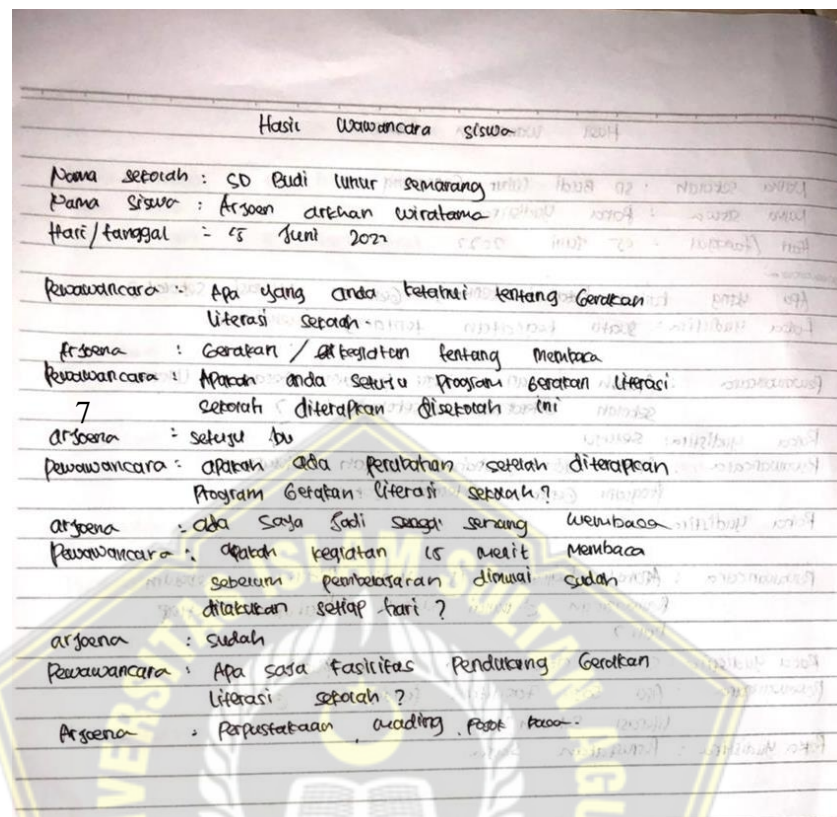 Hasil Wawancara siswa
Nama sekolah : SD Budi luhur semarang
Nama Siswa : Arjoen arkhan wiratama
Hari/tanggal : 15 Juni 2022
Pewawancara : Apa yang anda ketahui tentang Gerakan
literasi sekolah.
Arjoena : Gerakan / kegiatan tentang membaca
Pewawancara : Apakah anda setuju program Gerakan literasi
sekolah diterapkan disekolah ini
7
arjoena : setuju bu
pewawancara : apakah ada perubahan setelah diterapkan
Program Gerakan literasi sekolah ?
arjoena : ada saya jadi senang membaca
Pewawancara : apakah kegiatan 15 menit Membaca
sebelum pembelajaran dimulai sudah
dilakukan setiap hari ?
arjoena : sudah
Pewawancara : Apa saja fasilitas Pendukung Gerakan
literasi sekolah ?
Arjoena : Perpustakaan, mading, Pojok baca.
UNIVERSITAS ISLAM SULTAN AGU